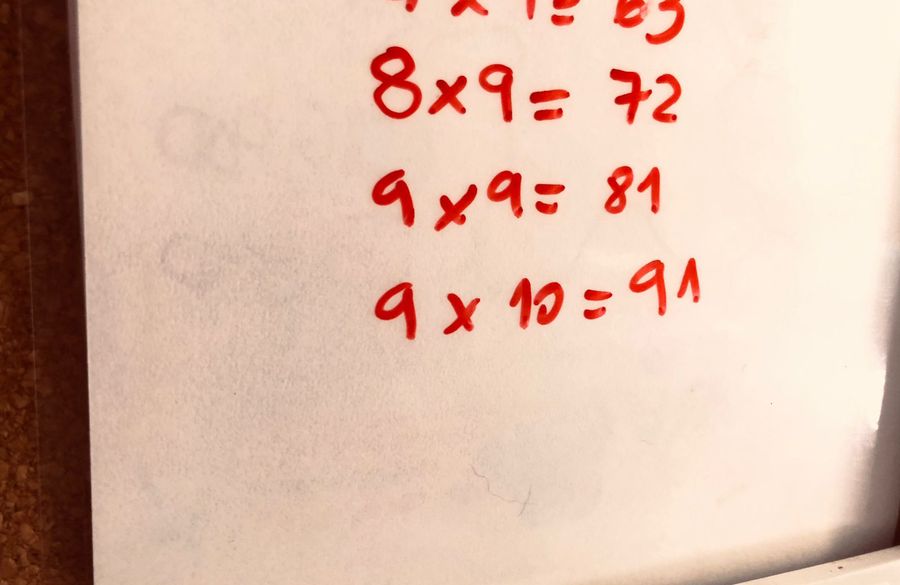 7 x 9 = 63
8 x 9 = 72
9 x 9 = 81
9 x 10 = 91